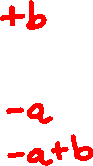 +b
-a
-a+b